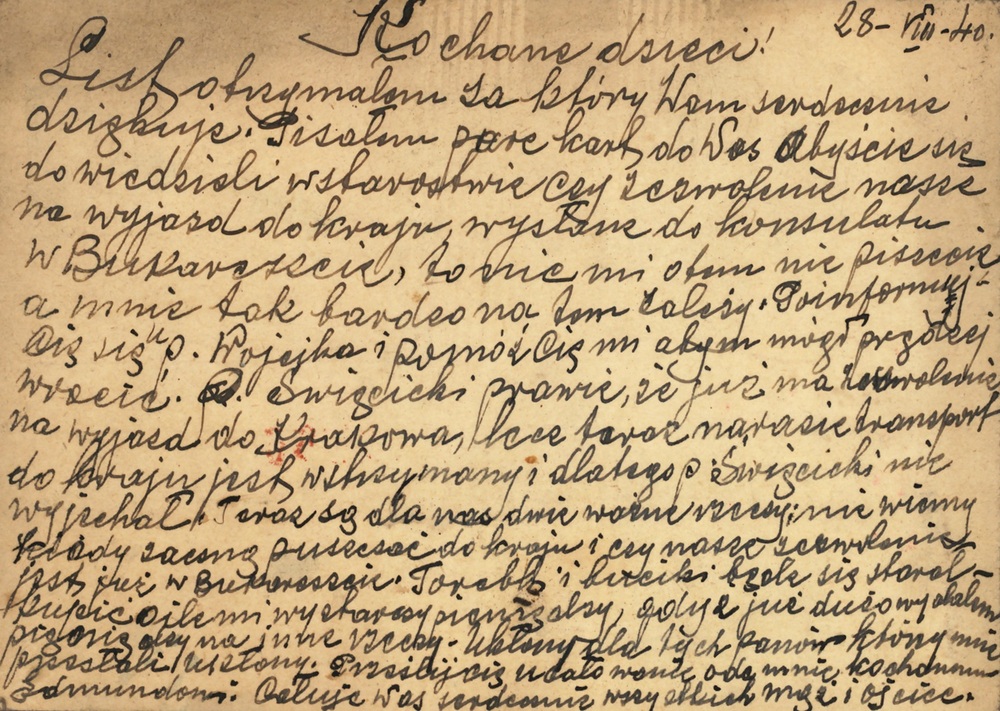 28-VIII-40.
Kochane dzieci!
List otrzymałem za który Wam serdecznie
dziękuje. Pisałem pare kart do Was Abyście się
dowiedzieli w starostwie czy zezwolenie nasze
na wyjazd do kraju, wysłane do konsulatu
w Bukareszcie, to nic mi otem nie piszecie
a mnie tak bardzo na tem zależy. Poinformuj-
Cię się u p. Wojejka i pomóż Cię mi abym mógł prędzej
wrócić. P. Swięcicki prawie, że już ma zezwolenie
na wyjazd do Krakowa, lecz teraz narazie transport
do kraju jest wstrzymany i dlatego p. Święcicki nie
wyjechał. Teraz są dla nas dwie ważne rzeczy: nie wiemy
kiedy zaczną puszczać do kraju i czy nasze zezwolenie
jest już w Bukareszcie. Torebk i buciki będe się starał
kupić o ile mi wystarczy pieniędzy, gdyż już dużo wydałem
pieniędzy na inne rzeczy. Ukłony dla tych panów którzy mnie
przesłali ukłony. Prześlijcię ucałowanie odemnie, kochanemu
Edmundowi. Całuje Was serdecznie wszystkich mąż i ojciec.